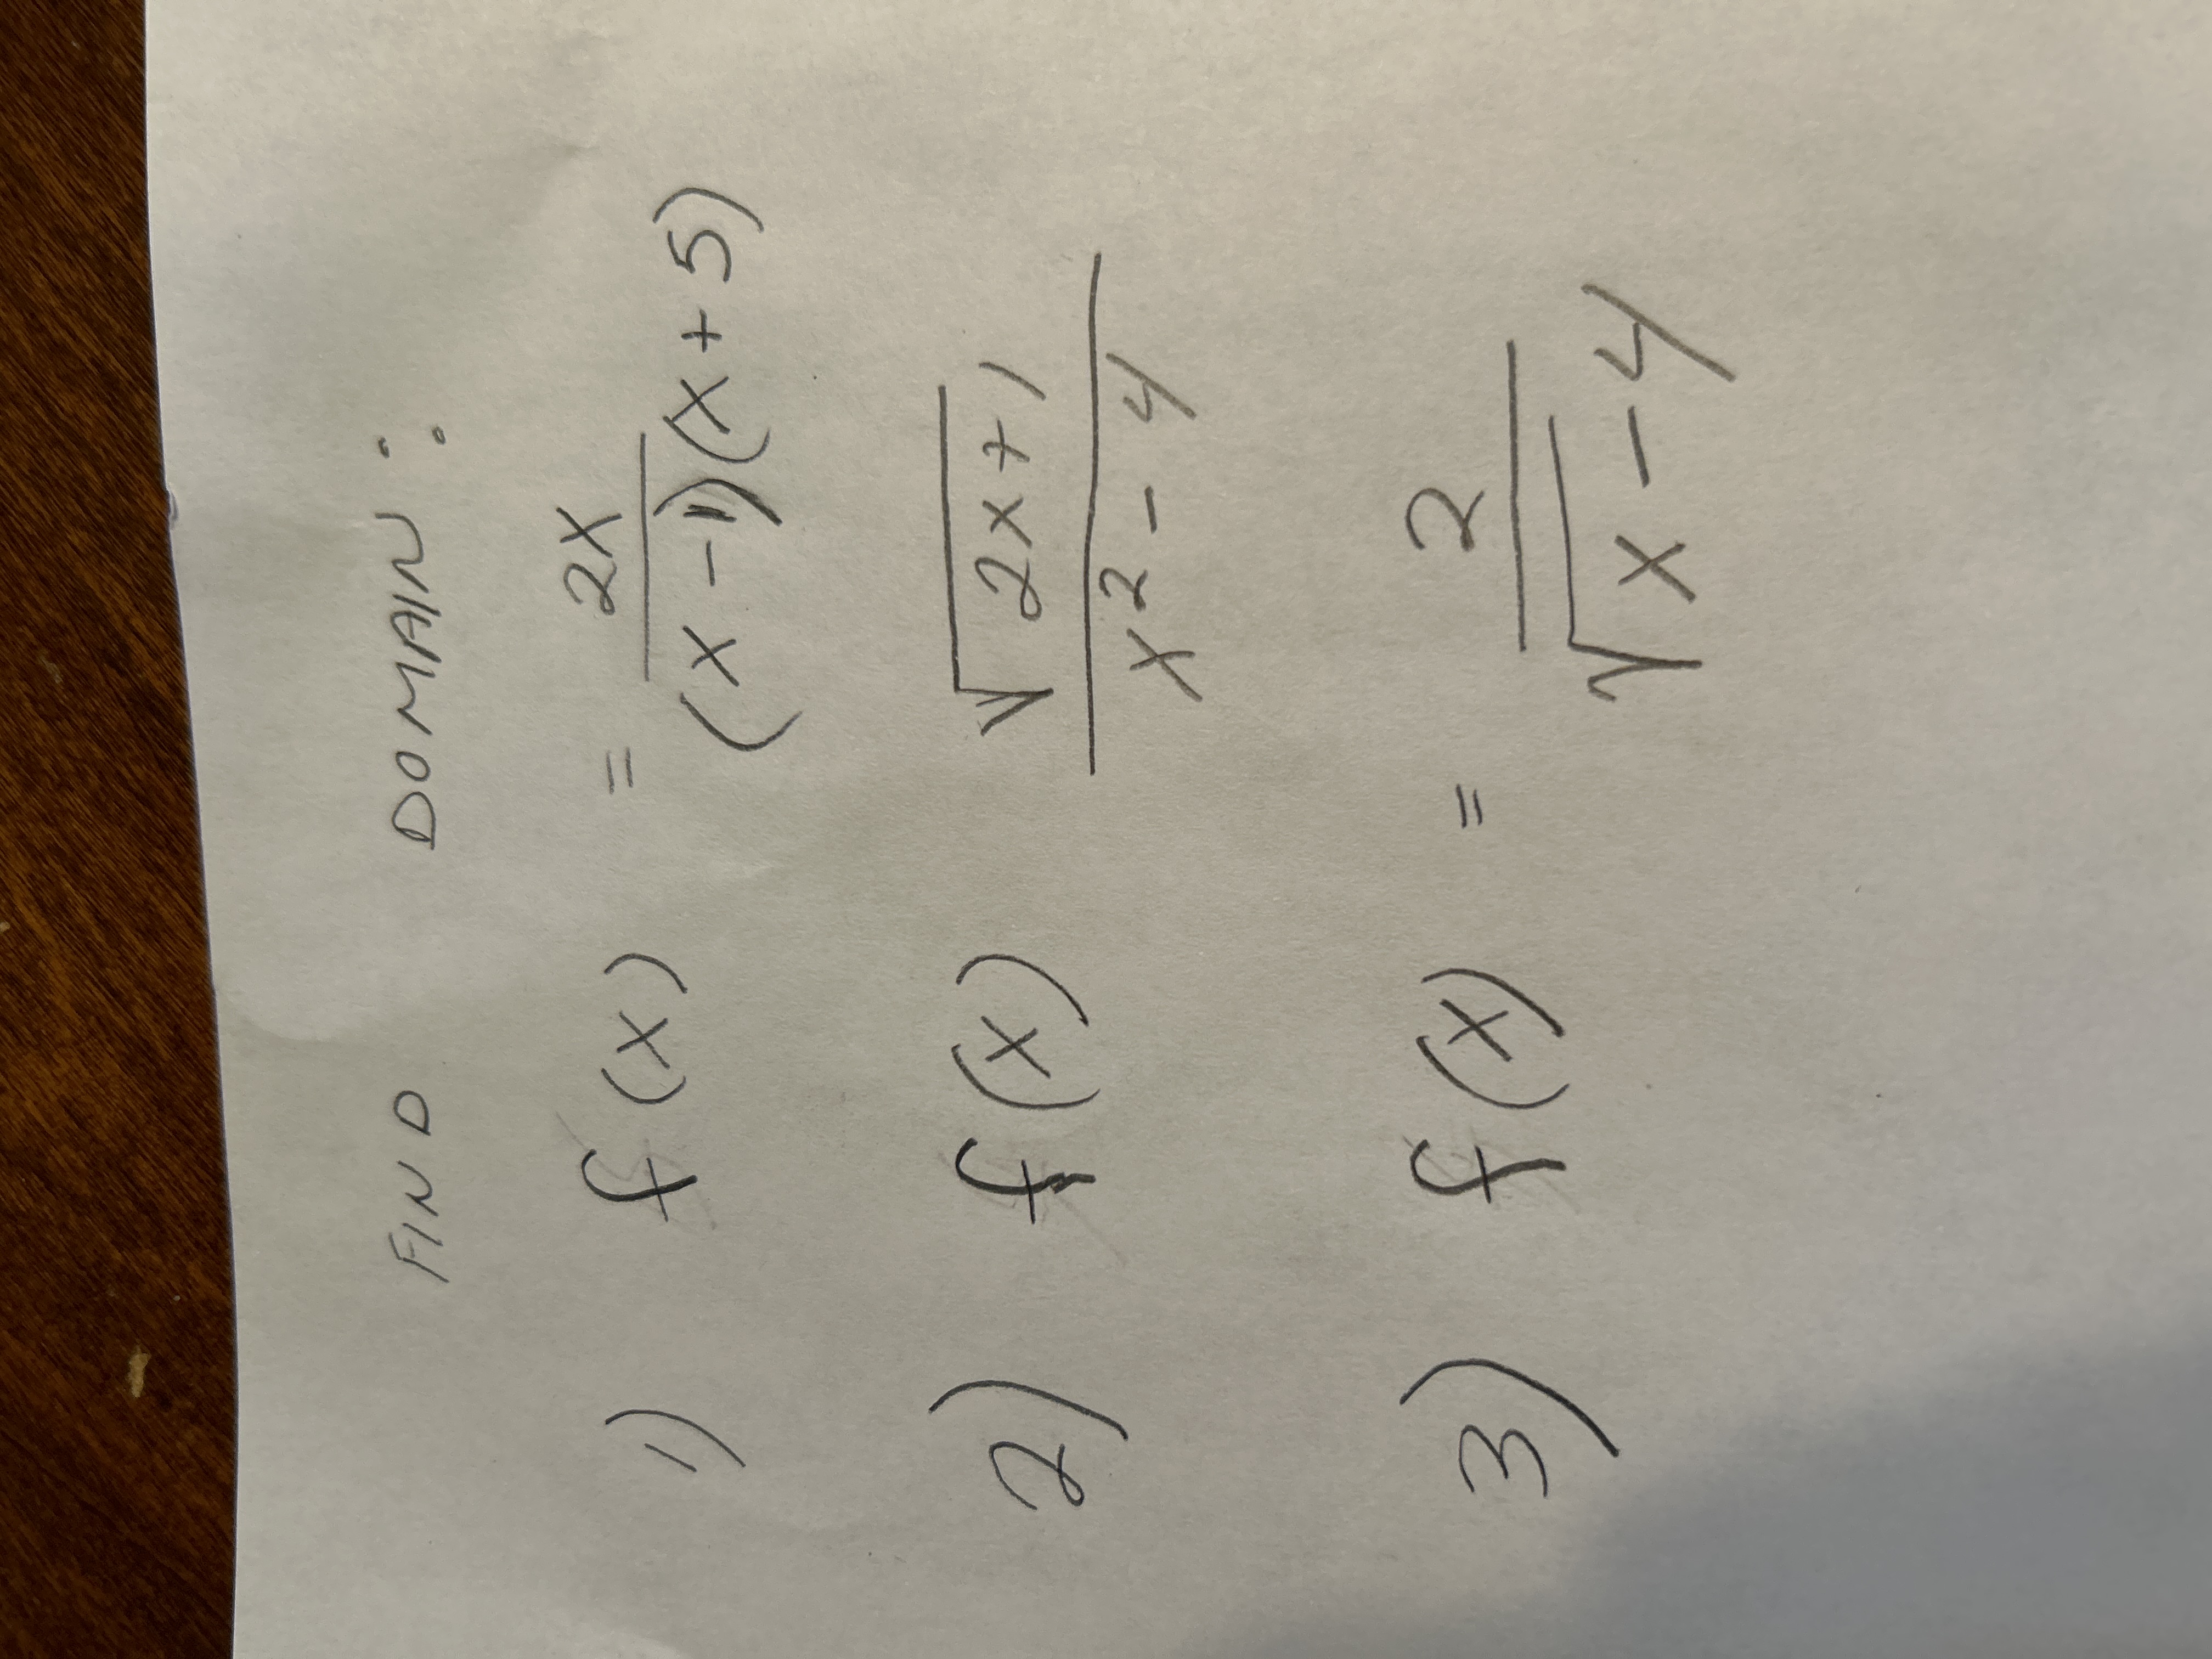 FIND DOMAIN:
1) f(x) = 2x
(x-1)(x+5)
2) f(x) √2x+1
x²-4
3) f(x) = 2
√x-4